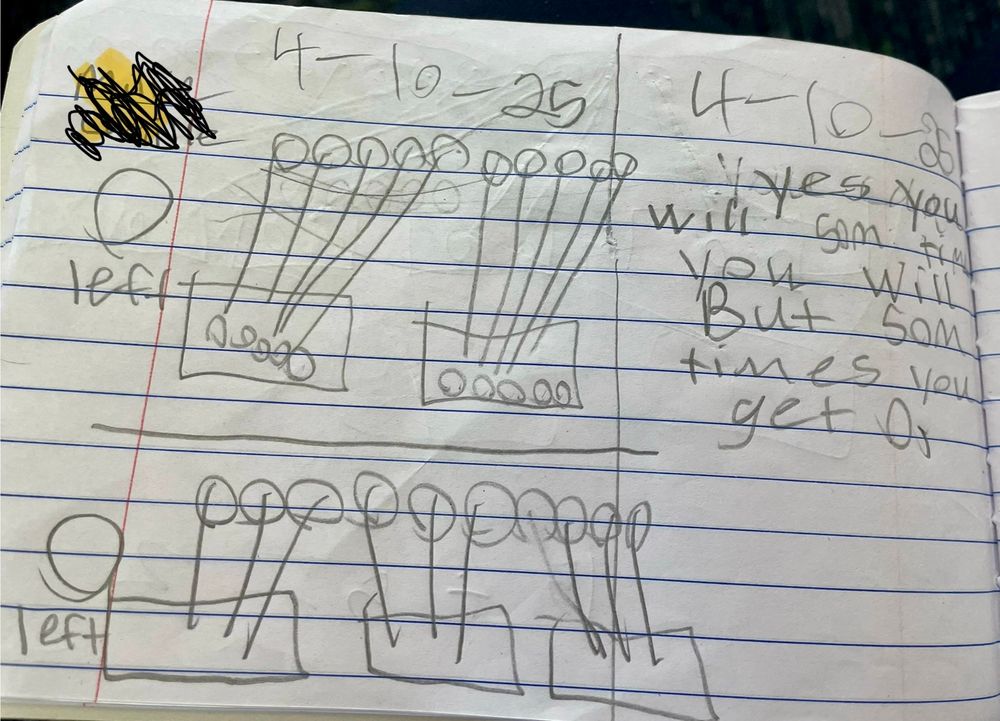 4-10-25
left
left
4-10-25
yes you
will som tim
you will
But som
times you
get 0,